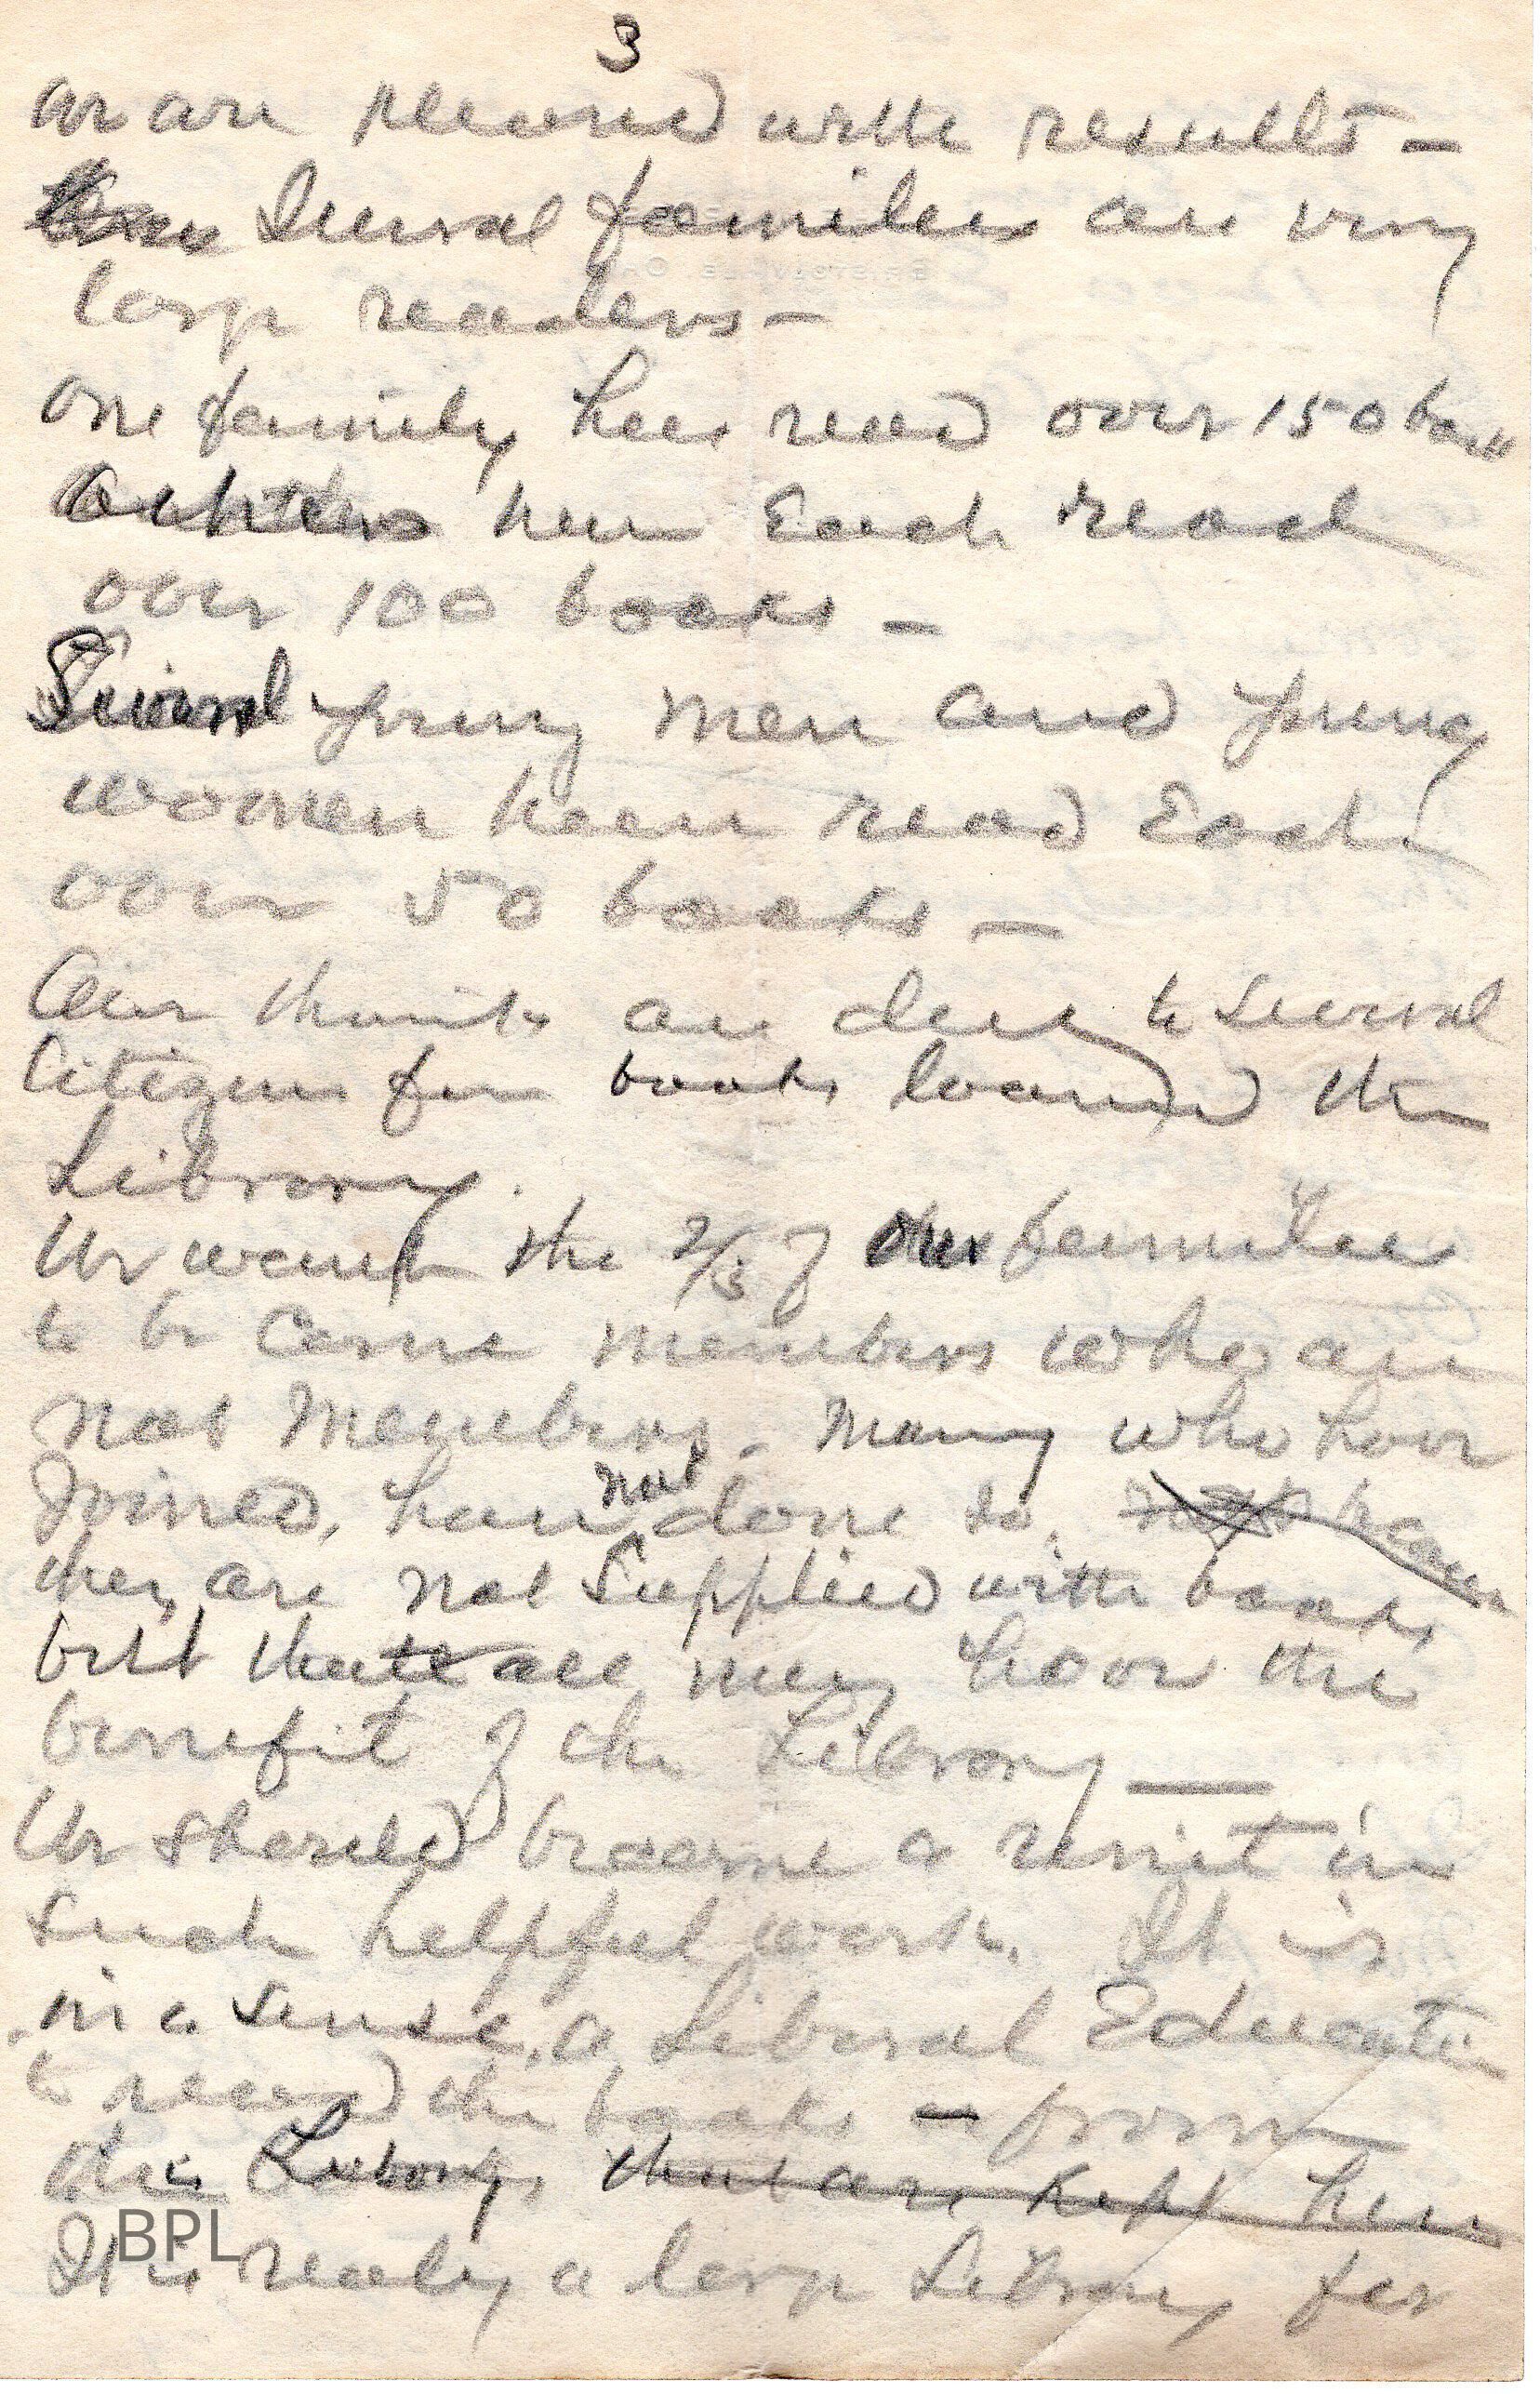 3
We are pleased with results —
Several families are very
large readers —
One family has read over 150 books
have Each read
over 100 books —
Several young men and young
women have read Each
over 50 books —
Our thanks are due to Several
Citizens for books loaned the
Library.
We want the 2/3 of our families
to be come members who are
not Members. Many who have
Joined, have not done so, not because
they are not Supplied with books,
but that all may have the
benefit of the Library —
We should become a unit in
such helpful work. It is
in a sense, a Liberal Education
to read the books — from
this Library, that are kept here
It is really a large Library for
BPL